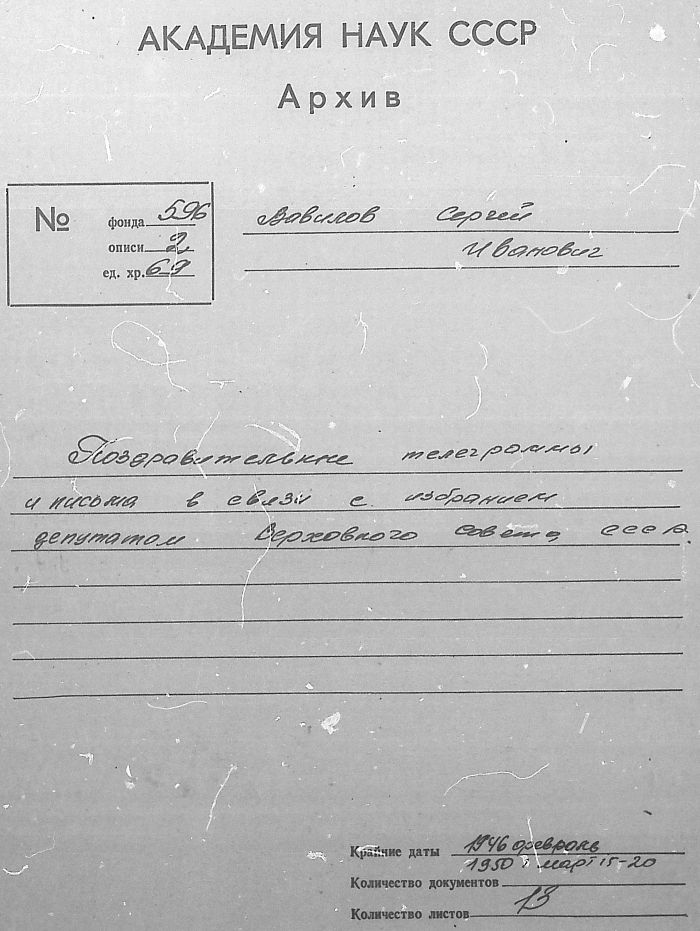 АКАДЕМИЯ НАУК СССР
Архив
№
фонда 596
описи 2
ед. хр. 69
Вавилов Сергей
Иванович
Поздравительные телеграммы
и письма в связи с избранием
депутатом Верховного Совета СССР.
Крайние даты 1946 февраль
1950 март 15-20
Количество документов
Количество листов 13